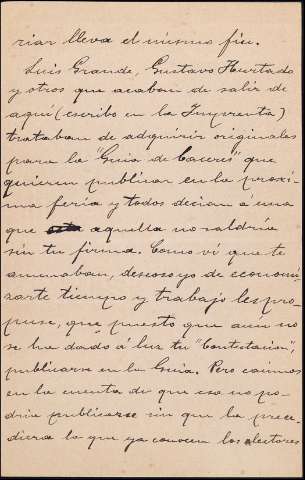 riar lleva el mismo fin.
Luis Grande, Gustavo Hurtado
y otros que acaban de salir de
aquí (escribo en la Imprenta)
trataban de adquirir originales
para la "Guía de Cáceres" que
quieren publicar en la proxi-
ma feria y todos decían a una
que aquella no saldría
sin tu firma. Como vi que te
amenazaban, deseoso yo de economi-
zarte tiempo y trabajo les pro-
puse, que puesto que aun no
se ha dado á luz tu "Contestacion",
publicarse en la Guía. Pero caimos
en la cuenta de que eso no po-
dría publicarse sin que la prece-
diera lo que ya conocen los lectores